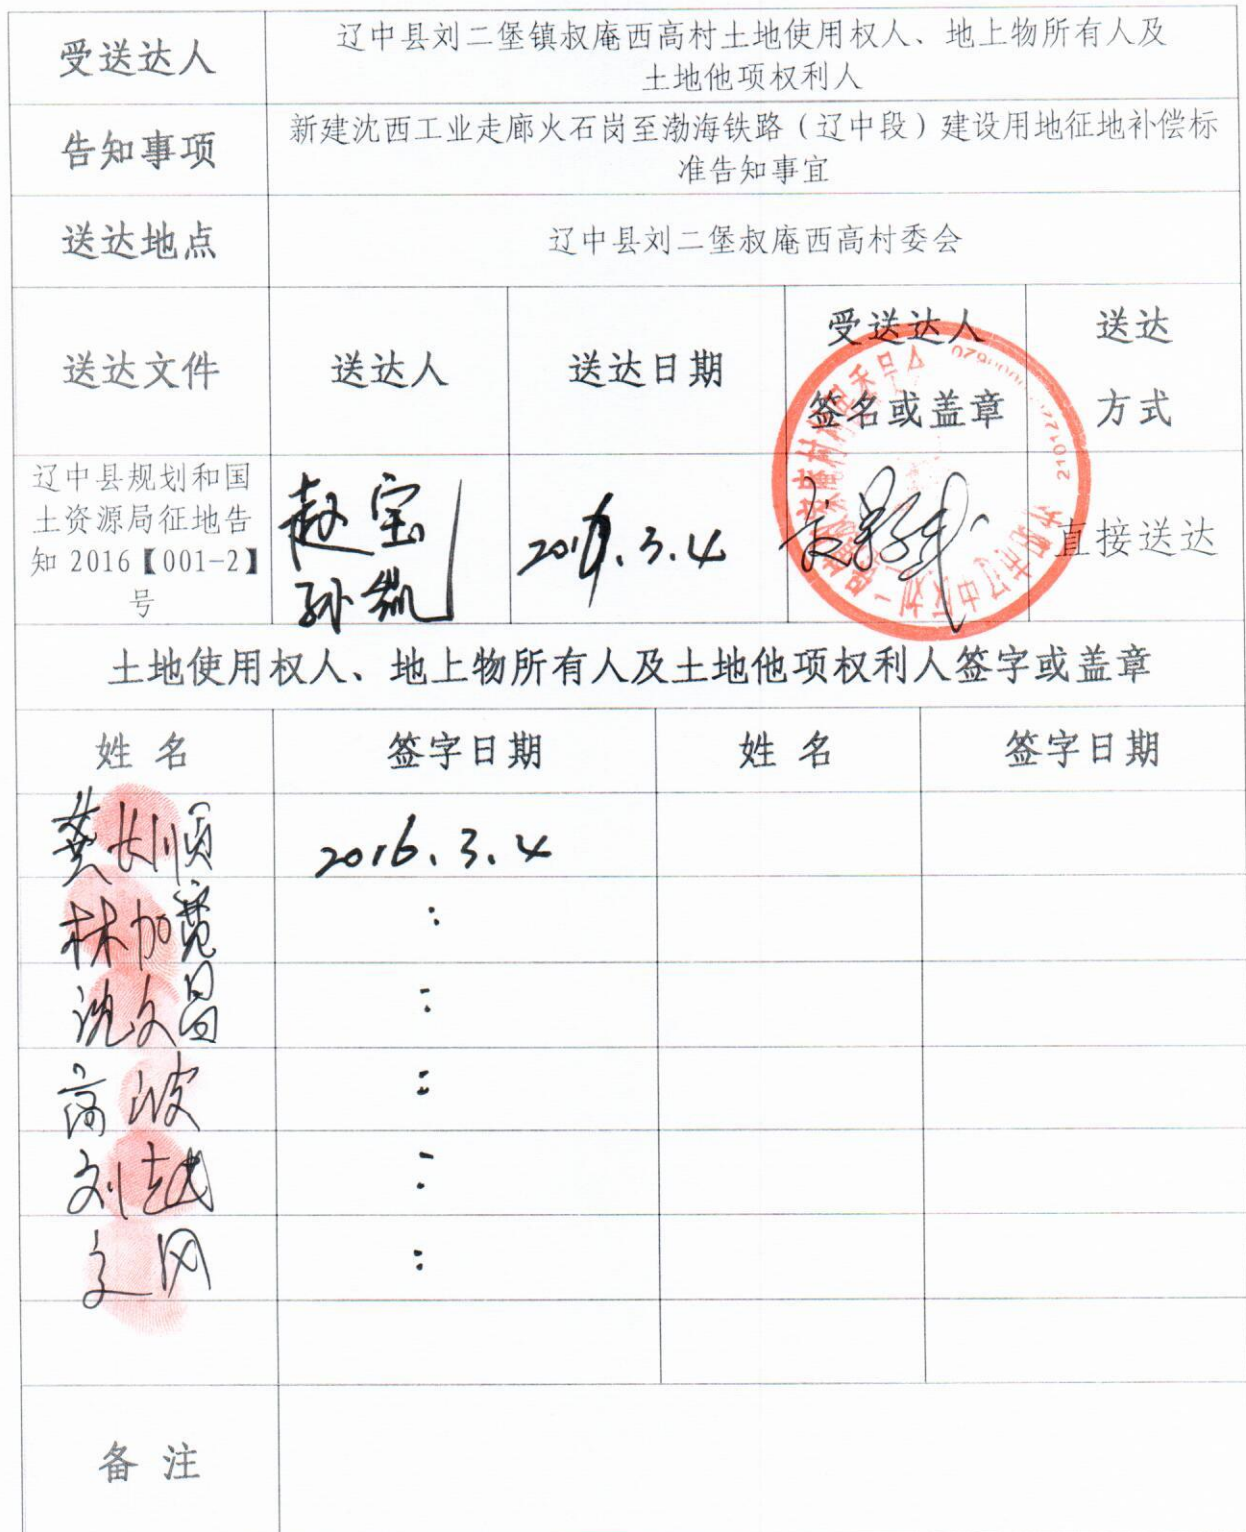 受送达人
辽中县刘二堡镇叔庵西高村土地使用权人、地上物所有人及
土地他项权利人
告知事项
新建沈西工业走廊火石岗至渤海铁路（辽中段）建设用地征地补偿标
准告知事宜
送达地点
辽中县刘二堡叔庵西高村委会
送达文件
送达人
送达日期
受送达人
签名或盖章
送达
方式
辽中县规划和国
土资源局征地告
知 2016【001-2】
号
赵宝刚
孙凯
3.4
直接送达
土地使用权人、地上物所有人及土地他项权利人签字或盖章
姓 名
签字日期
姓 名
签字日期
龚长顺
2016.3.4
林加宽
沈文昌
高波
刘越
文风
备 注